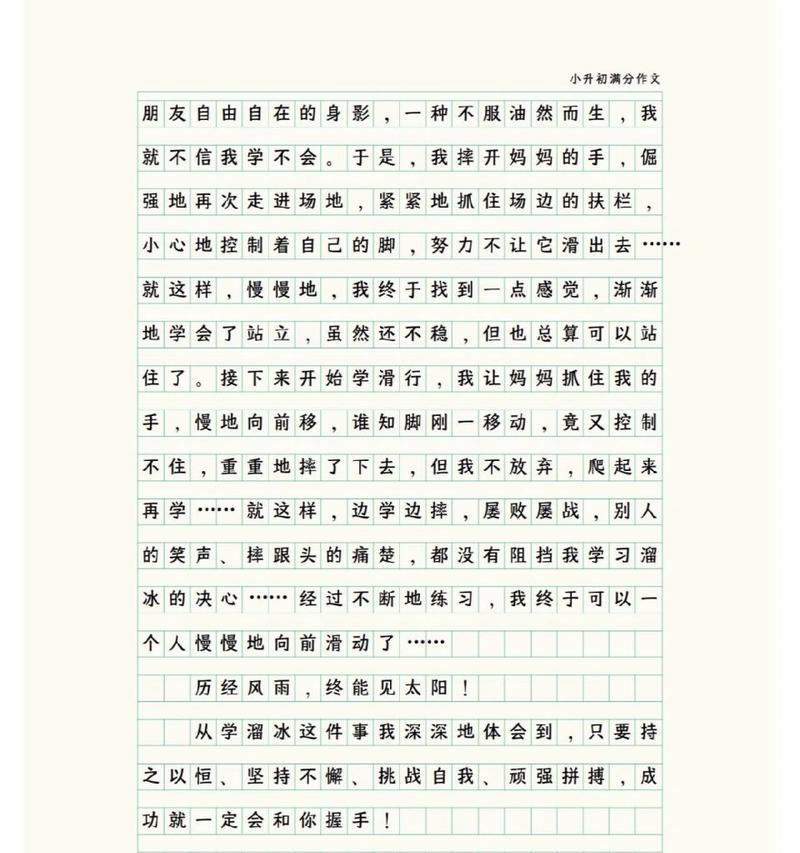 小升初满分作文
朋友自由自在的身影，一种不服油然而生，我
就不信我学不会。于是，我摔开妈妈的手，倔
强地再次走进场地，紧紧地抓住场边的扶栏，
小心地控制着自己的脚，努力不让它滑出去……
就这样，慢慢地，我终于找到一点感觉，渐渐
地学会了站立，虽然还不稳，但也总算可以站
住了。接下来开始学滑行，我让妈妈抓住我的
手，慢地向前移，谁知脚刚一移动，竟又控制
不住，重重地摔了下去，但我不放弃，爬起来
再学……就这样，边学边摔，屡败屡战，别人
的笑声、摔跟头的痛楚，都没有阻挡我学习溜
冰的决心……经过不断地练习，我终于可以一
个人慢慢地向前滑动了……
历经风雨，终能见太阳！
从学溜冰这件事我深深地体会到，只要持
之以恒、坚持不懈、挑战自我、顽强拼搏，成
功就一定会和你握手！